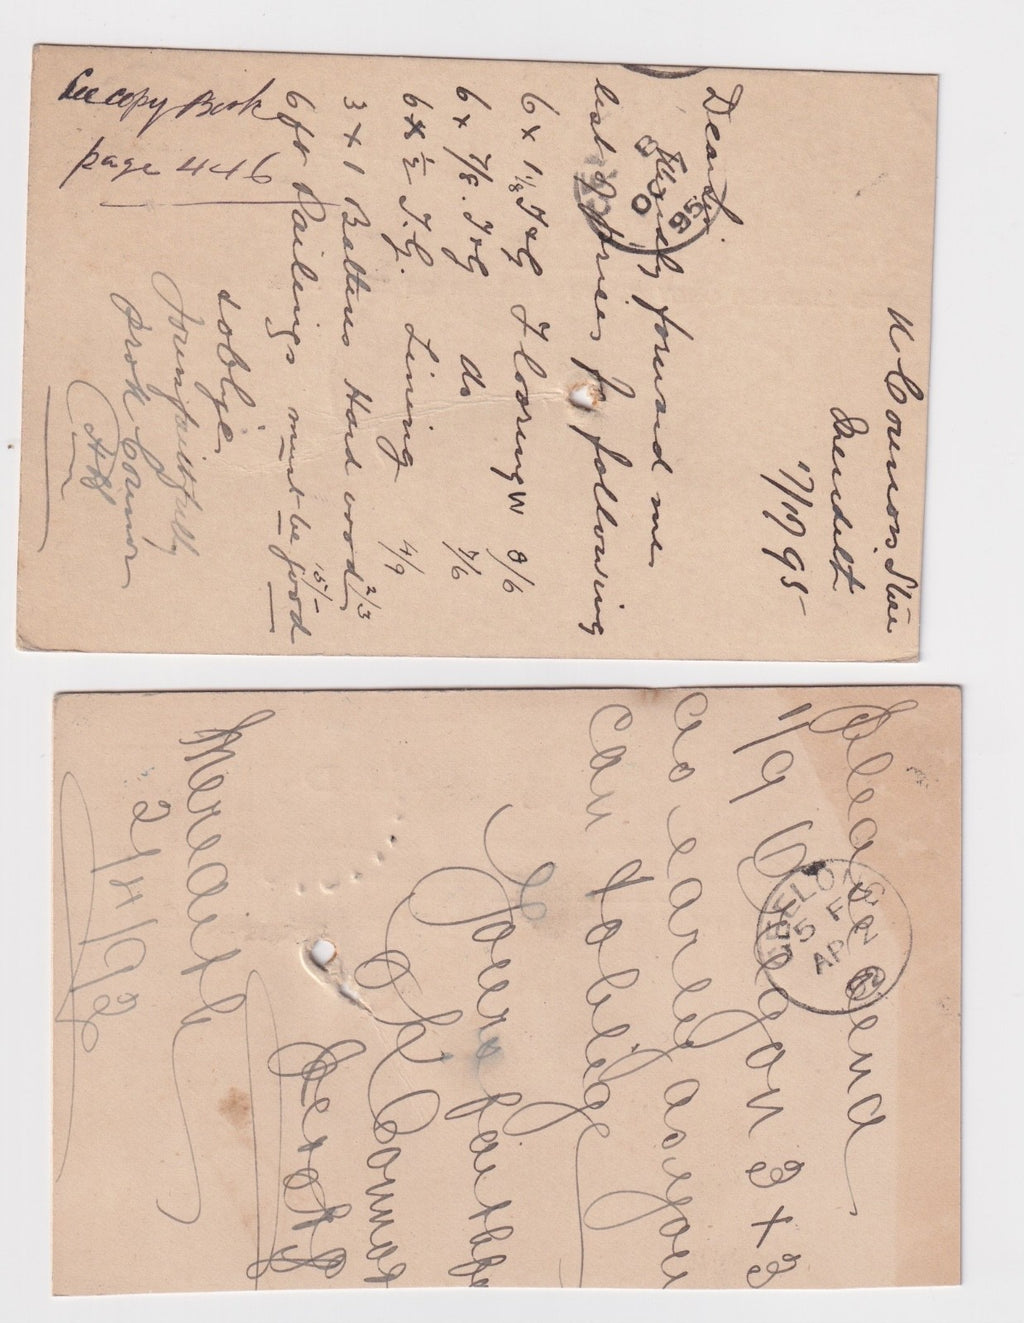 O'Connor, Shire
Meredith
17/10/95
Dear Sir
Kindly forward me
list of prices for following
6 x 1 1/8 T & G Flooring W 8/6
6 x 7/8 . T & G do 7/6
6 x 1/2 T. G. Lining 4/9
3 x 1 Battens Hard wood 2/3
6 ft Pailings must be good 15/-
& oblige
Yours faithfully
O'Connor
See Copy Book
page 446
95
Please Send
1/9 Oregon 3 x 3
as early as you
can & oblige
Yours faithfly
O'Connor
Meredith
21/4/92
GEELONG
5
AP 2
92